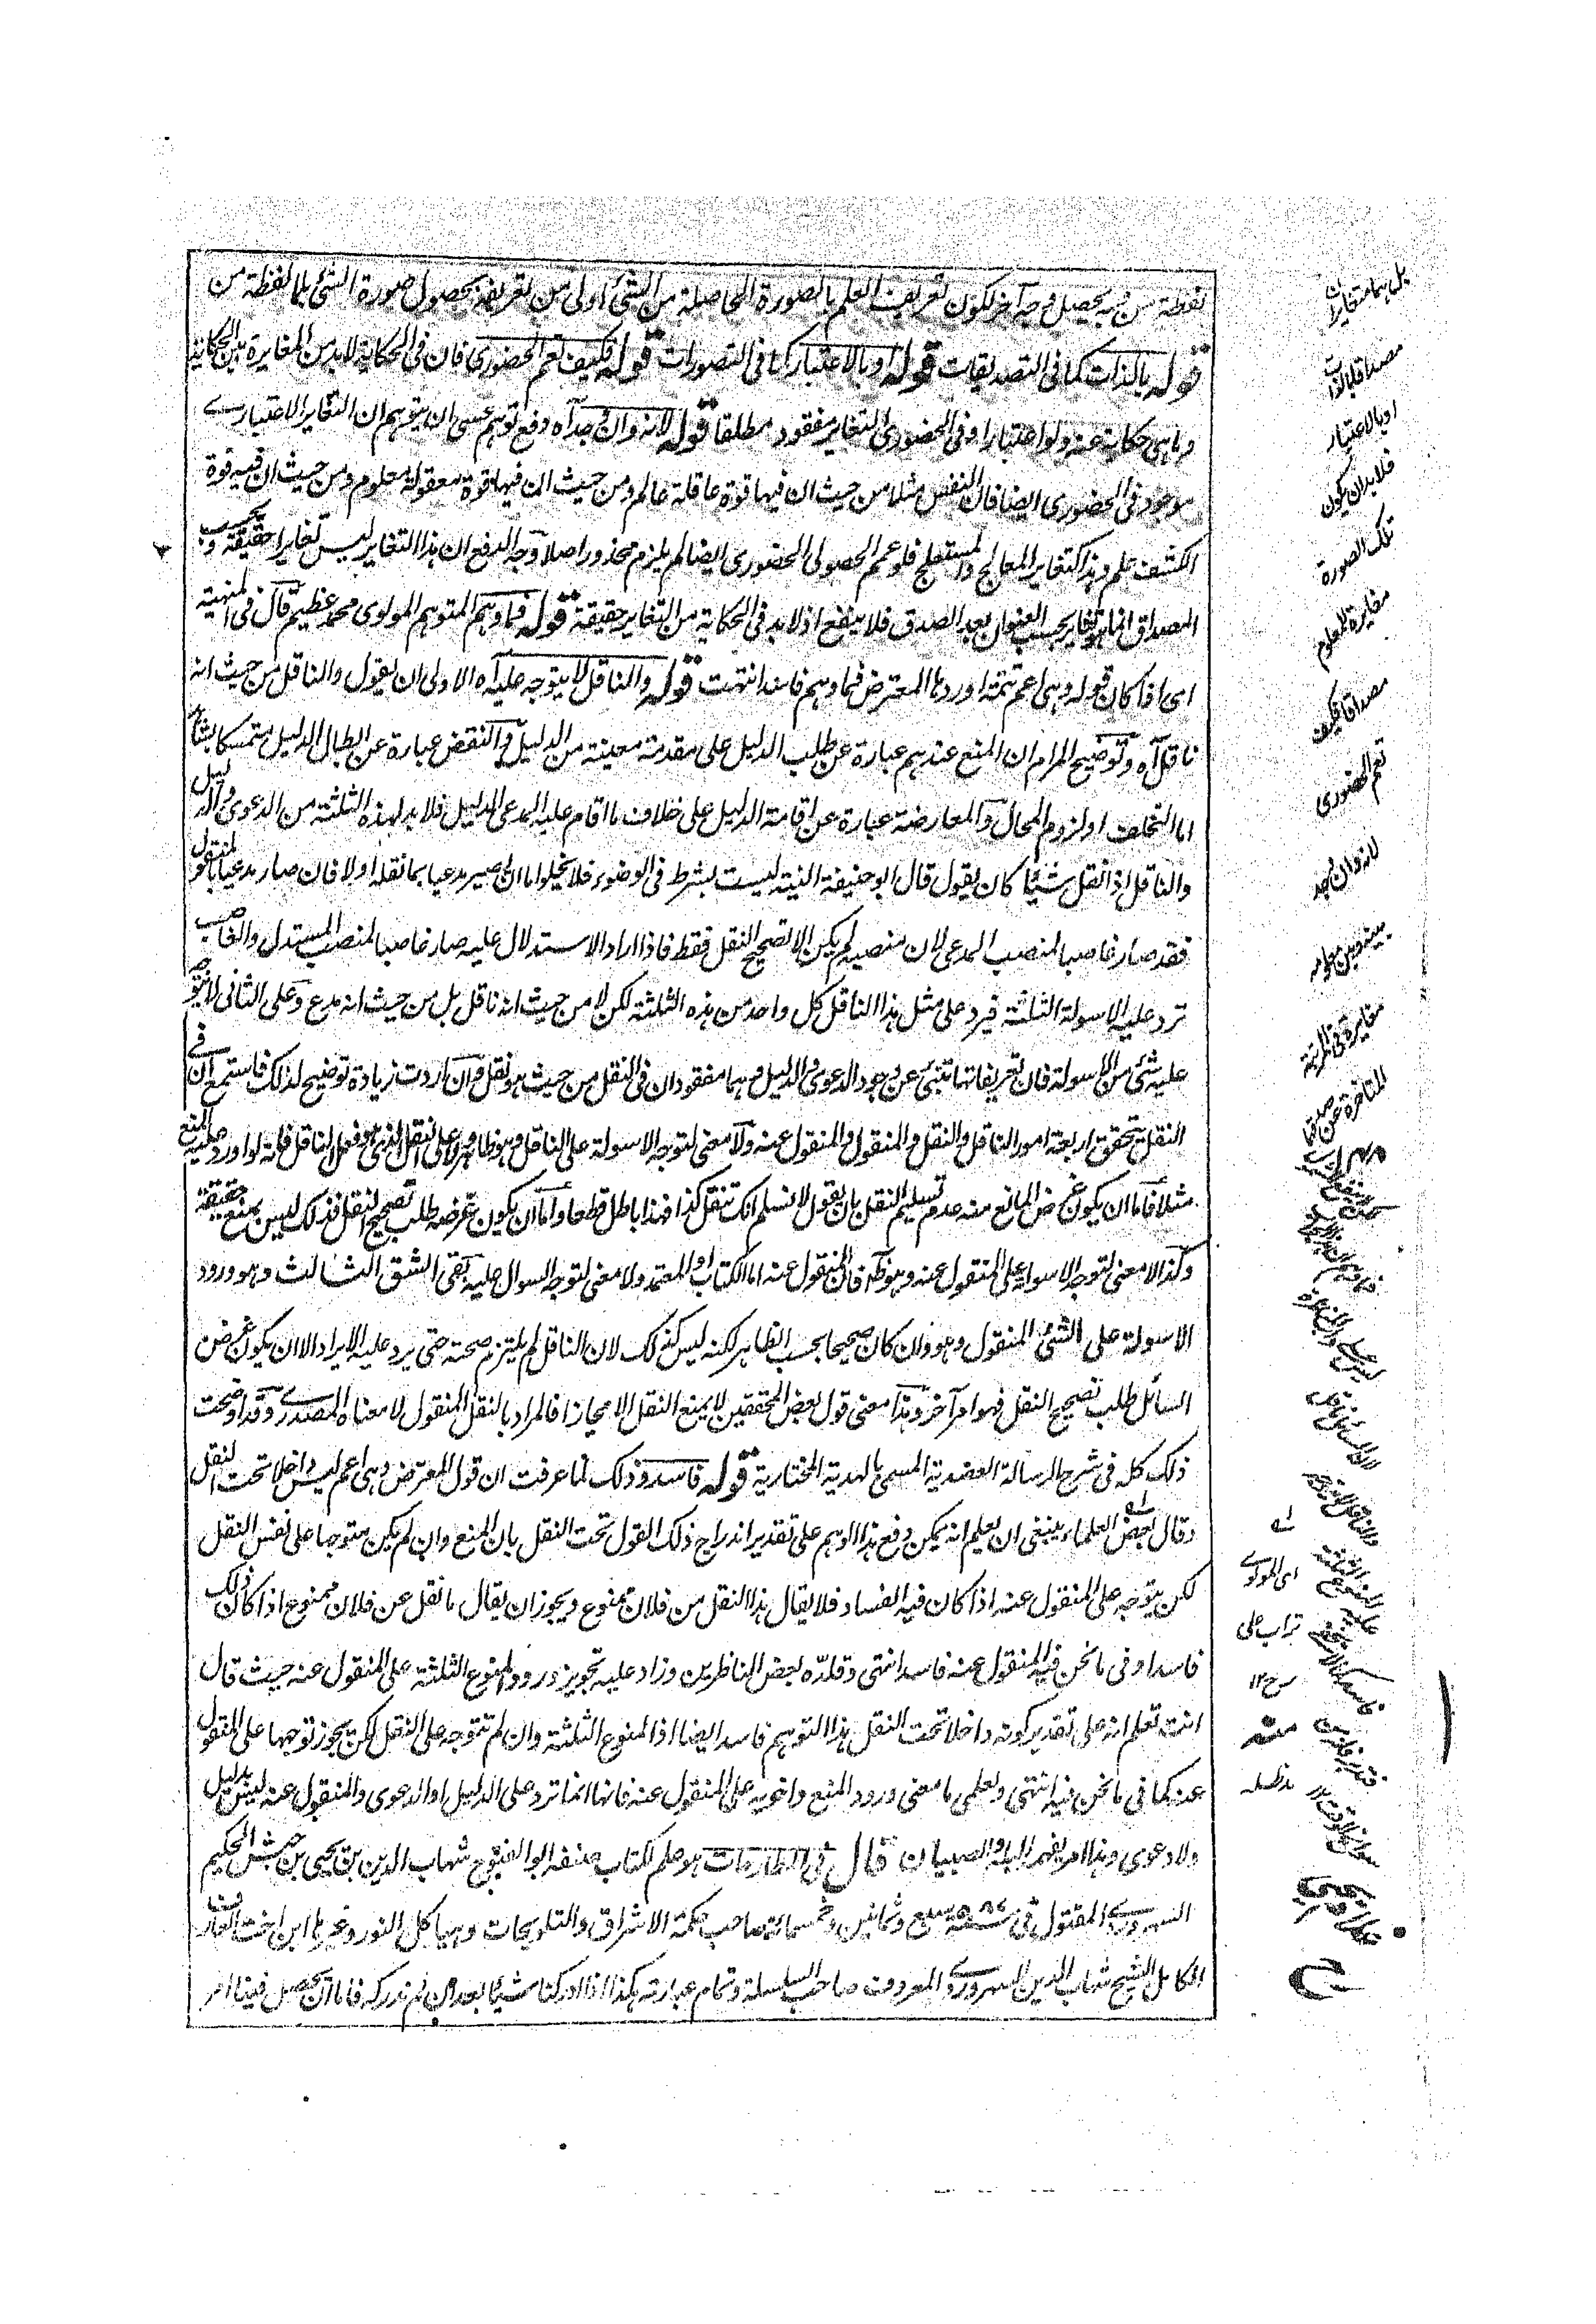 لفظة من فيه يحصل وجه آخر لكون تعريف العلم بالصورة الحاصلة من الشئ اولى من تعريفه بحصول صورة الشئ بلا لفظة من
قوله بالذات كما فى التصديقات قوله او بالاعتبار كما فى التصورات قوله فكيف تعم الحضورى فان فى الحكاية لابد من المغايرة بين الحكاية
وما هى حكاية عنه ولو اعتبارا وفى الحضورى التغاير مفقود مطلقا قوله لانه وان وجد آه دفع توهم عسى ان يتوهم ان التغاير الاعتبارے
موجود فى الحضورى ايضا فان النفس مثلا من حيث ان فيها قوة عاقلة عالم ومن حيث ان فيها قوة معقولة معلوم ومن حيث ان فيه قوة
الكشف علم وهذا كتغاير المعالج والمستعلج فلو عمم الحصولى الحضورى ايضا لم يلزم محذور اصلا وجه الدفع ان هذا التغاير ليس تغايرا حقيقة وبحسب
المصداق انما هو تغاير بحسب العنوان بعد الصدق فلا ينفع اذ لابد فى الحكاية من التغاير حقيقة قوله فما وهم المتوهم المولوى محمد عظيم قال فى المنهية
اى اذا كان قوله وهى اعم تتمة اوردها المعترض فما وهم فاسد انتهت قوله والناقل لا يتوجه عليه آه الاولى ان يقول والناقل من حيث انه
ناقل آه وتوضيح المرام ان المنع عندهم عبارة عن طلب الدليل على مقدمة معينة من الدليل والنقض عبارة عن ابطال الدليل متمسكا بشاهد
اما التخلف او لزوم المحال والمعارضة عبارة عن اقامة الدليل على خلاف ما اقام عليه المدعى الدليل فلابد لهذه الثلثة من الدعوى والدليل
والناقل اذا نقل شيئا كان يقول قال ابو حنيفة النية ليست بشرط فى الوضوء فلا يخلو اما ان يصير مدعيا بما نقله اولا فان صار مدعيا بالمنقول
فقد صار غاصبا لمنصب المدعى لان منصبه لم يكن الا تصحيح النقل فقط فاذا اراد الاستدلال عليه صار غاصبا لمنصب المستدل والغاصب
ترد عليه الاسولة الثلثة فيرد على مثل هذا الناقل كل واحد من هذه الثلثة لكن لا من حيث انه ناقل بل من حيث انه مدع وعلى الثانى لا يتوجه
عليه شئ من الاسولة فان تعريفاتها تنبئ عن وجود الدعوى والدليل وهما مفقودان فى النقل من حيث هو نقل وان اردت زيادة توضيح لذلك فاستمع ان فے
النقل تتحقق اربعة امور الناقل والنقل والمنقول والمنقول عنه ولا معنى لتوجه الاسولة على الناقل وهو ظاهر ولا على النقل الذى هو فعل الناقل فانه لو اورد عليه المنع
مثلا فاما ان يكون غرض المانع منه عدم تسليم النقل بان يقول لا نسلم انك تنقل كذا فهذا باطل قطعا واما ان يكون غرضه طلب تصحيح النقل فذلك ليس بمنع حقيقة
وكذا لا معنى لتوجه الاسولة على المنقول عنه وهو ظ فان المنقول عنه اما الكتاب او المعتمد ولا معنى لتوجه السوال عليه بقى الشق الثالث وهو ورود
الاسولة على الشئ المنقول وهو وان كان صحيحا بحسب الظاهر لكنه ليس كذلك لان الناقل لم يلتزم صحته حتى يرد عليه الايراد الا ان يكون غرض
السائل طلب تصحيح النقل فهو امر آخر وهذا معنى قول بعض المحققين لا يمنع النقل الا مجازا فالمراد بالنقل المنقول لا معناه المصدرے وقد اوضحت
ذلك كله فى شرح الرسالة العضدية المسمى بالهدية المختارية قوله فاسد وذلك لما عرفت ان قول المعترض وهى اعم ليس داخلا تحت النقل
وقال بعض العلماء ينبغى ان يعلم انه يمكن دفع هذا الوهم على تقدير اندراج ذلك القول تحت النقل بان المنع وان لم يكن متوجها على نفس النقل
لكن يتوجه على المنقول عنه اذا كان فيه الفساد فلا يقال هذا النقل من فلان ممنوع ويجوز ان يقال ما نقل عن فلان ممنوع اذا كان ذلك
فاسدا وفى ما نحن فيه المنقول عنه فاسد انتهى وقلده بعض الناظرين وزاد عليه تجويز ورود المنوع الثلثة على المنقول عنه حيث قال
انت تعلم انه على تقدير كونه داخلا تحت النقل هذا التوهم فاسد ايضا اذ المنوع الثلثة وان لم تتوجه على النقل لكن يجوز توجهها على المنقول
عنه كما فى ما نحن فيه انتهى ولعلمى ما معنى ورود المنع واخويه على المنقول عنه فانها انما ترد على الدليل او الدعوى والمنقول عنه ليس بدليل
ولا دعوى وهذا امر يفهمه البله والصبيان قال فى المطارحات هو علم لكتاب صنفه ابو الفتوح شهاب الدين بن يحيى بن حبش الحكيم
السهروردے المقتول فى سنة ۵۸۷ سبع وثمانين وخمسمائة صاحب حكمة الاشراق والتلويحات وهياكل النور وغيرها ابن اخت العارف
الكامل الشيخ شهاب الدين السهروردے المعروف صاحب السلسلة وتمام عبارته هكذا اذا ادركنا شيئا بعد ان لم ندركه فاما ان يحصل فينا امر
بل هما متغايران
مصداقا بالذات
او بالاعتبار
فلابد ان يكون
تلك الصورة
مغايرة للمعلوم
مصداقا فكيف
تعم الحضورى
لانه وان وجد
بينه وبين علمه
مغايرة فى المرتبة
المتاخرة عن صدقهما
اى المولوے
تراب على
منه
مدظله